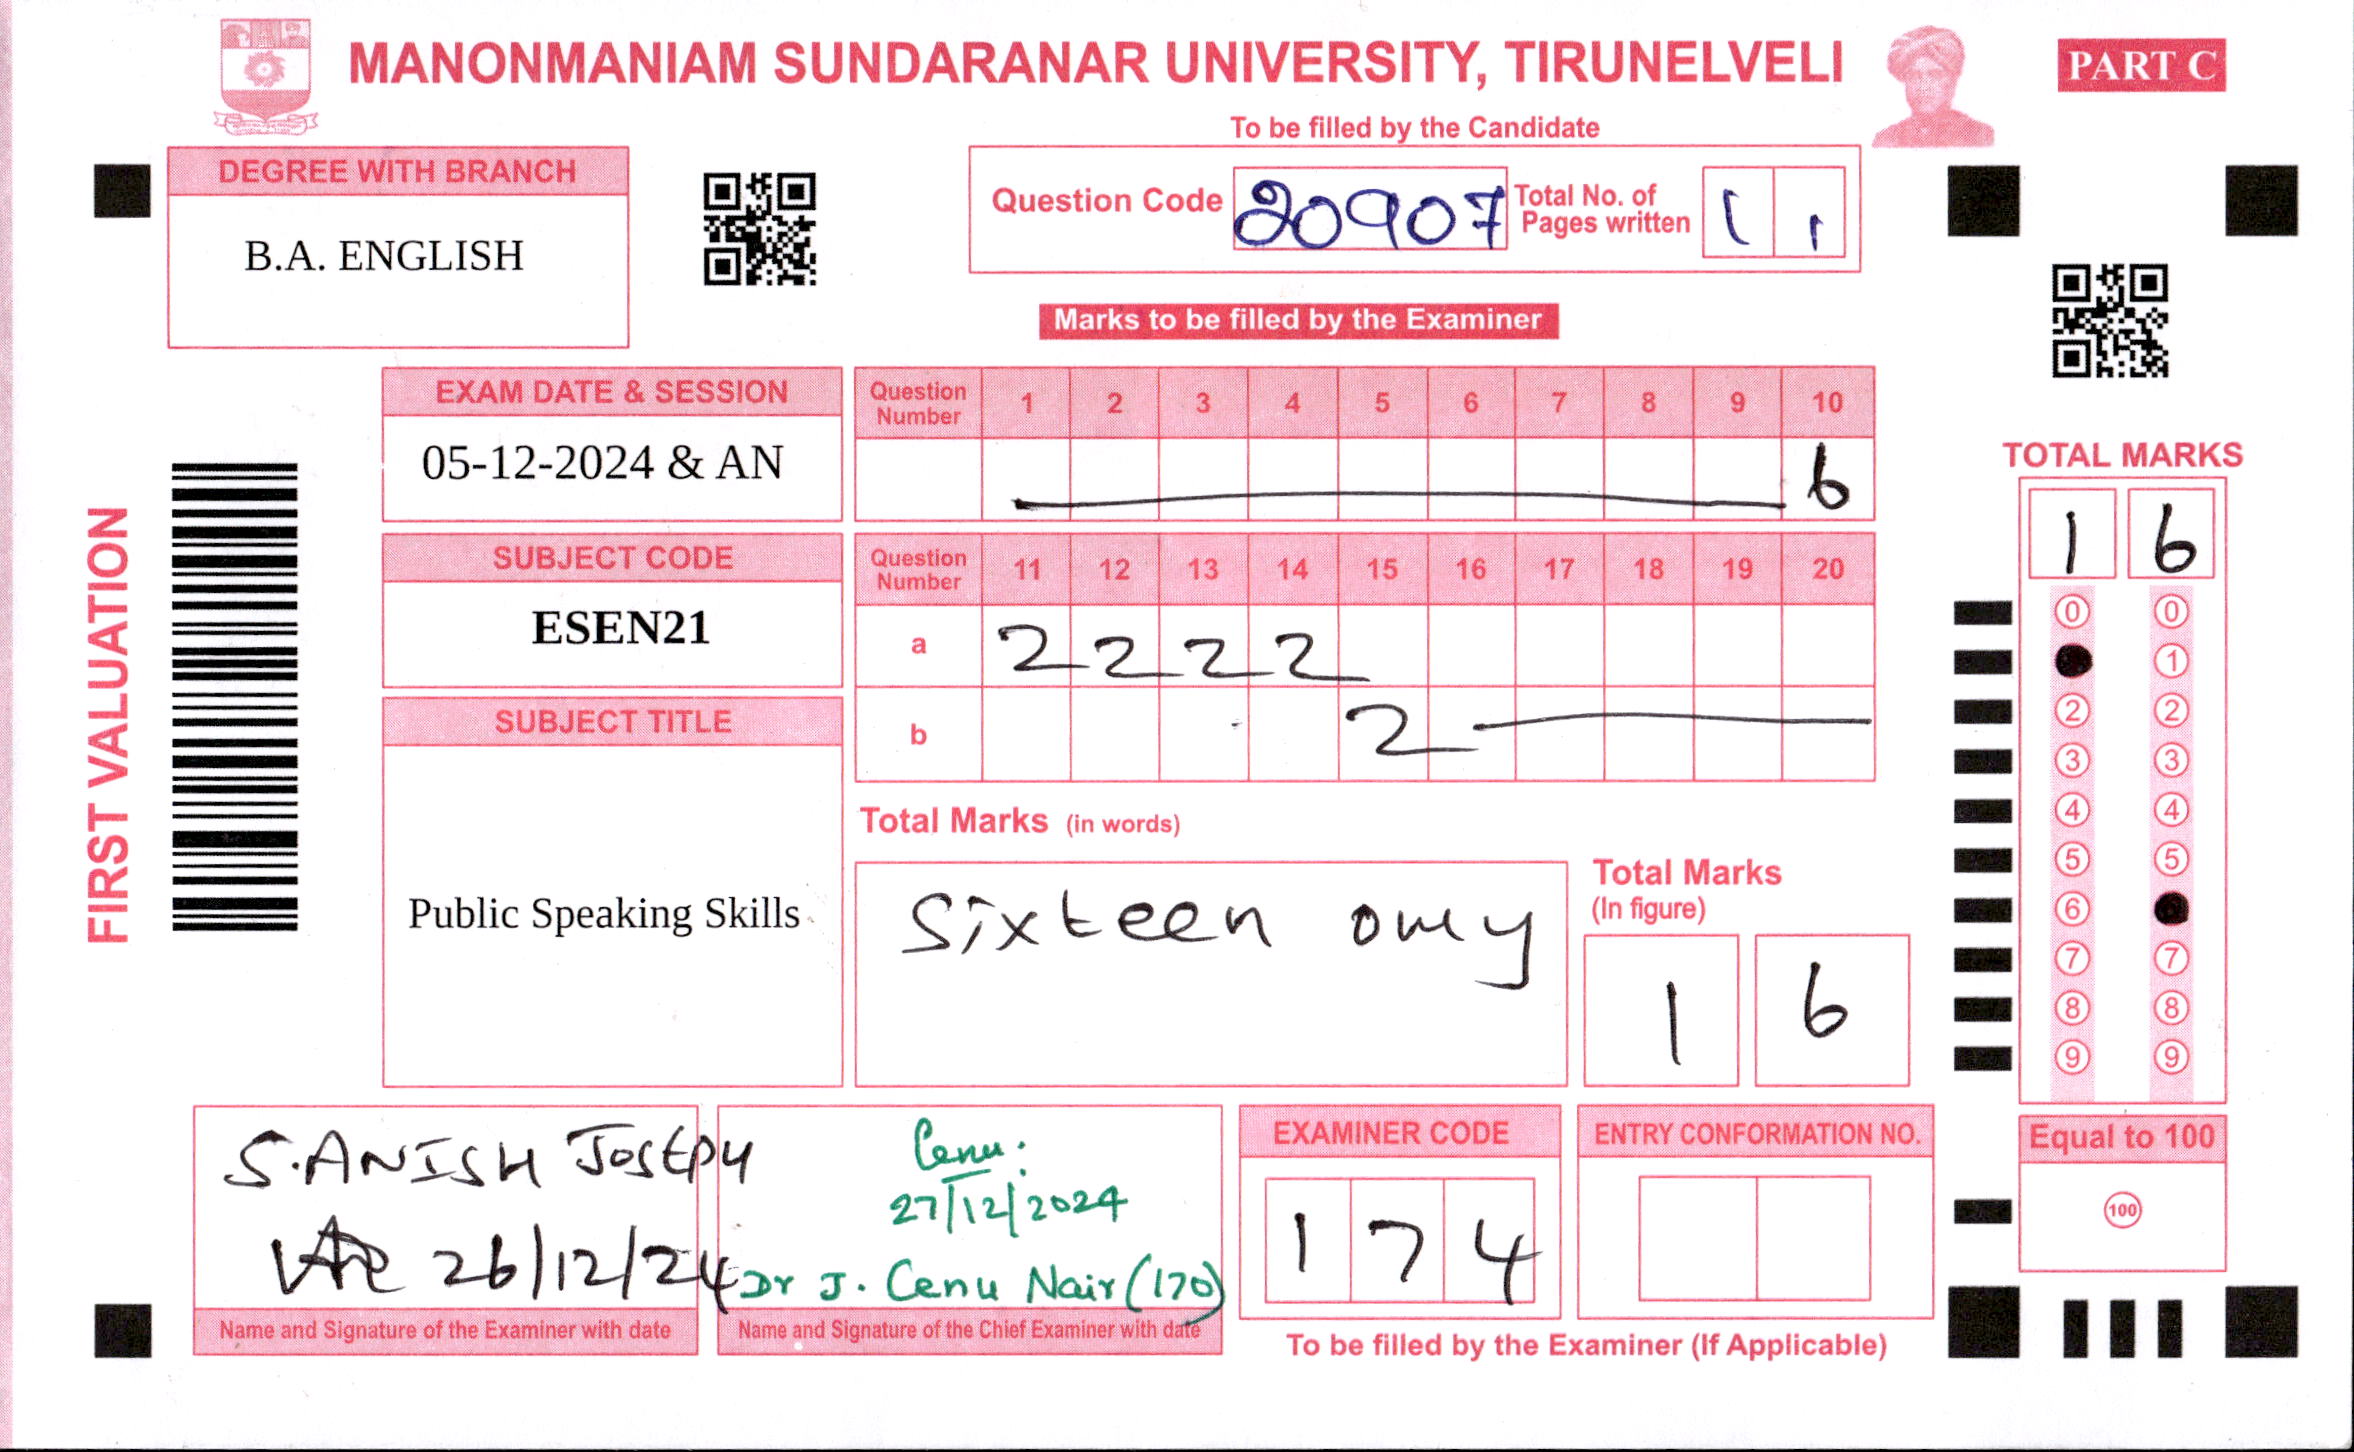 MANONMANIAM SUNDARANAR UNIVERSITY, TIRUNELVELI
PART C
To be filled by the Candidate
DEGREE WITH BRANCH
B.A. ENGLISH
Question Code 20907 Total No. of Pages written 1 1
Marks to be filled by the Examiner
FIRST VALUATION
EXAM DATE & SESSION
05-12-2024 & AN
SUBJECT CODE
ESEN21
SUBJECT TITLE
Public Speaking Skills
Question Number 1 2 3 4 5 6 7 8 9 10
6
Question Number 11 12 13 14 15 16 17 18 19 20
a 2 2 2 2
b 2
Total Marks (in words)
Sixteen only
Total Marks
(In figure)
1 6
TOTAL MARKS
1 6
0 0
1
2 2
3 3
4 4
5 5
6
7 7
8 8
9 9
Equal to 100
100
S. ANISH JOSEPH
26/12/24
Name and Signature of the Examiner with date
Cenu.
27/12/2024
Dr J. Cenu Nair (170)
Name and Signature of the Chief Examiner with date
EXAMINER CODE
1 7 4
ENTRY CONFORMATION NO.
To be filled by the Examiner (If Applicable)